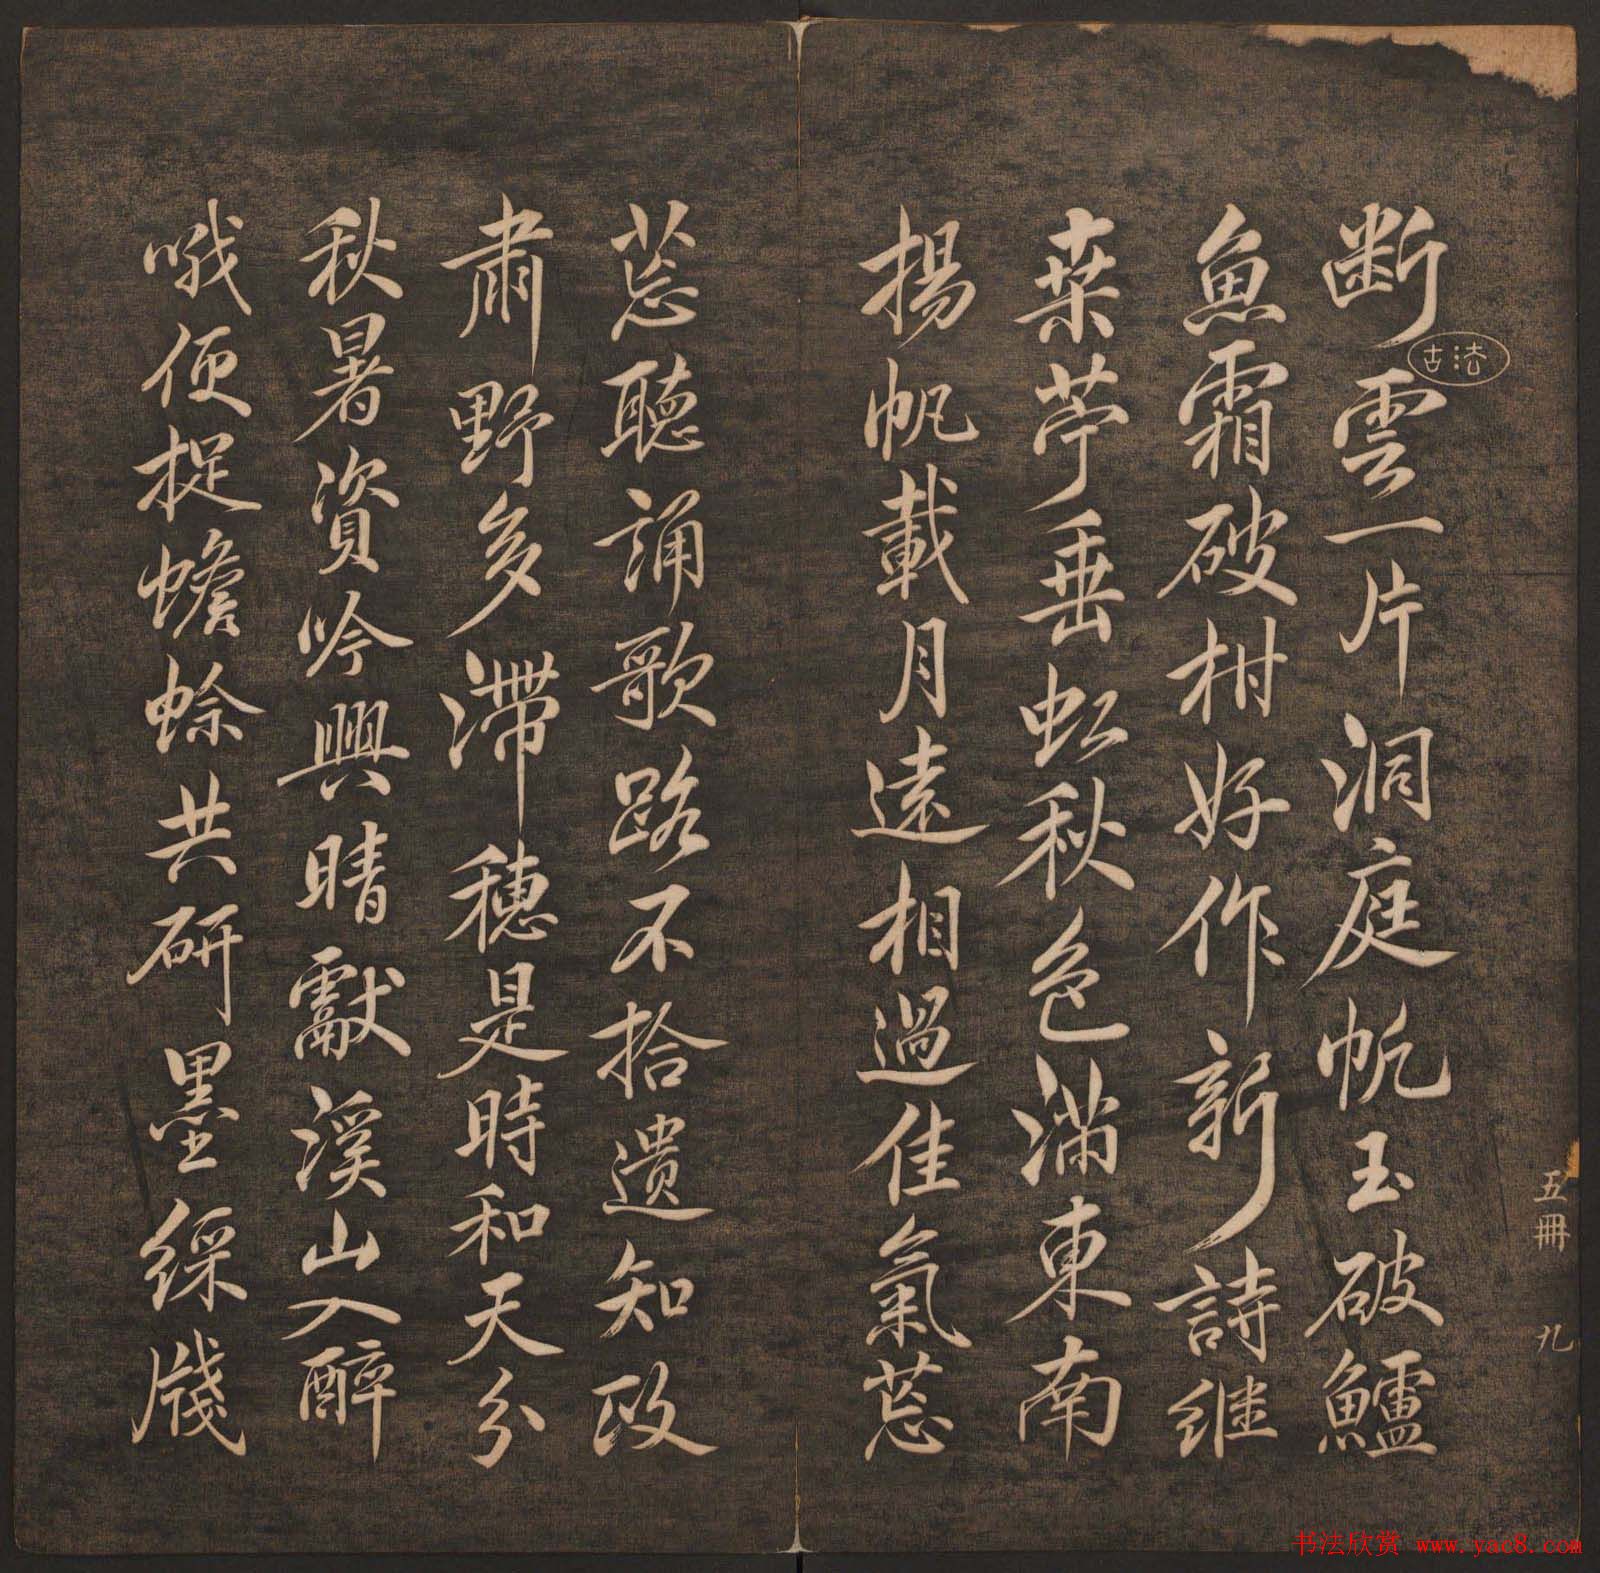 断雲一片洞庭帆玉破鱸
魚霜破柑好作新詩继
桒苧垂虹秋色满東南
揚帆載月遠相過佳氣荵
荵聽誦歌路不拾遺知政
肅野多滯穗是時和天分
秋暑資吟興晴獻溪山入醉
哦便捉蟾蜍共研墨綵牋
法古
五冊 九
书法欣赏 www.yac8.com